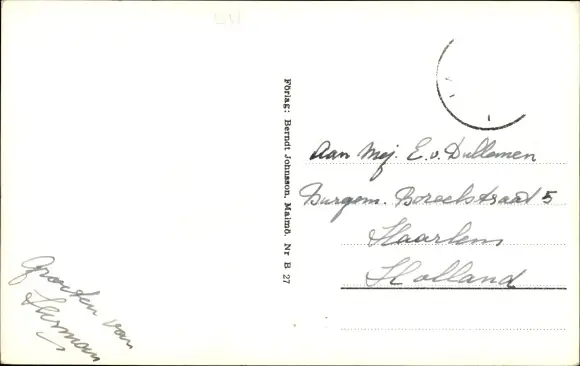 Groeten van
Herman
Förlag: Berndt Johnsson, Malmö. Nr B 27
Aan Mej. E. v. Dullemen
Burgem. Boreelstraat 5
Haarlem
Holland